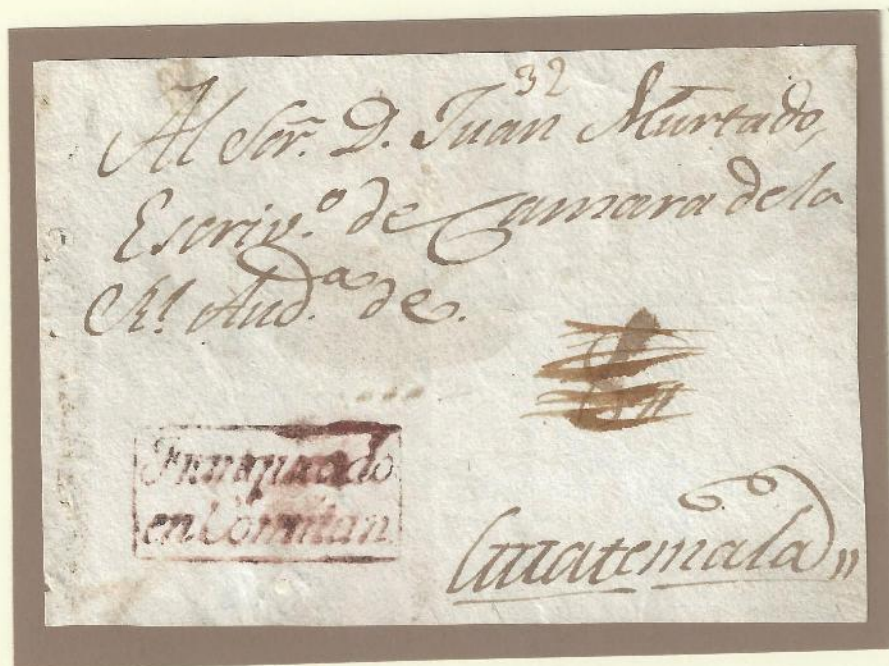 32
Al Sor. D. Juan Murtado,
Escriv.º de Camara de la
Rl. Aud.ª de.
Franqueado
en Comitan
Guatemala